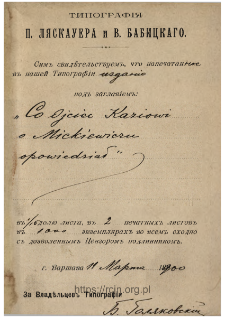 ТИПОГРАФІЯ
П. ЛЯСКАУЕРА и В. БАБИЦКАГО.
Симъ свидѣтельствуемъ, что напечатанное
въ нашей Типографіи изданіе
подъ заглавіемъ:
„Co Ojciec Kaziowi
o Mickiewiczu
opowiedział"
въ долю листа, въ 2 печатныхъ листовъ
въ 1000 экземплярахъ во всемъ сходно
съ дозволеннымъ Цензурою подлинникомъ.
г. Варшава 11 Марта
За Владѣльцевъ Типографіи
https://rcin.org.pl